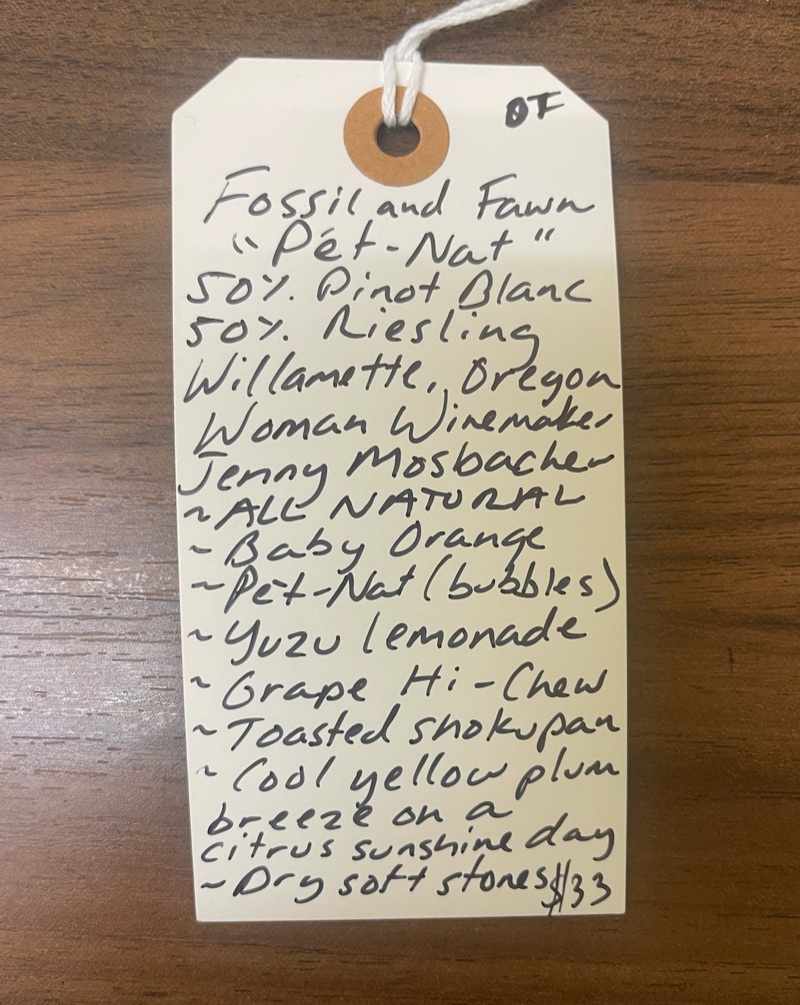 OF
Fossil and Fawn
"Pét-Nat"
50% Pinot Blanc
50% Riesling
Willamette, Oregon
Woman Winemaker
Jenny Mosbacher
~ALL NATURAL
~Baby Orange
~Pét-Nat (bubbles)
~Yuzu lemonade
~Grape Hi-Chew
~Toasted shokupan
~Cool yellow plum
breeze on a
citrus sunshine day
~Dry soft stones $33